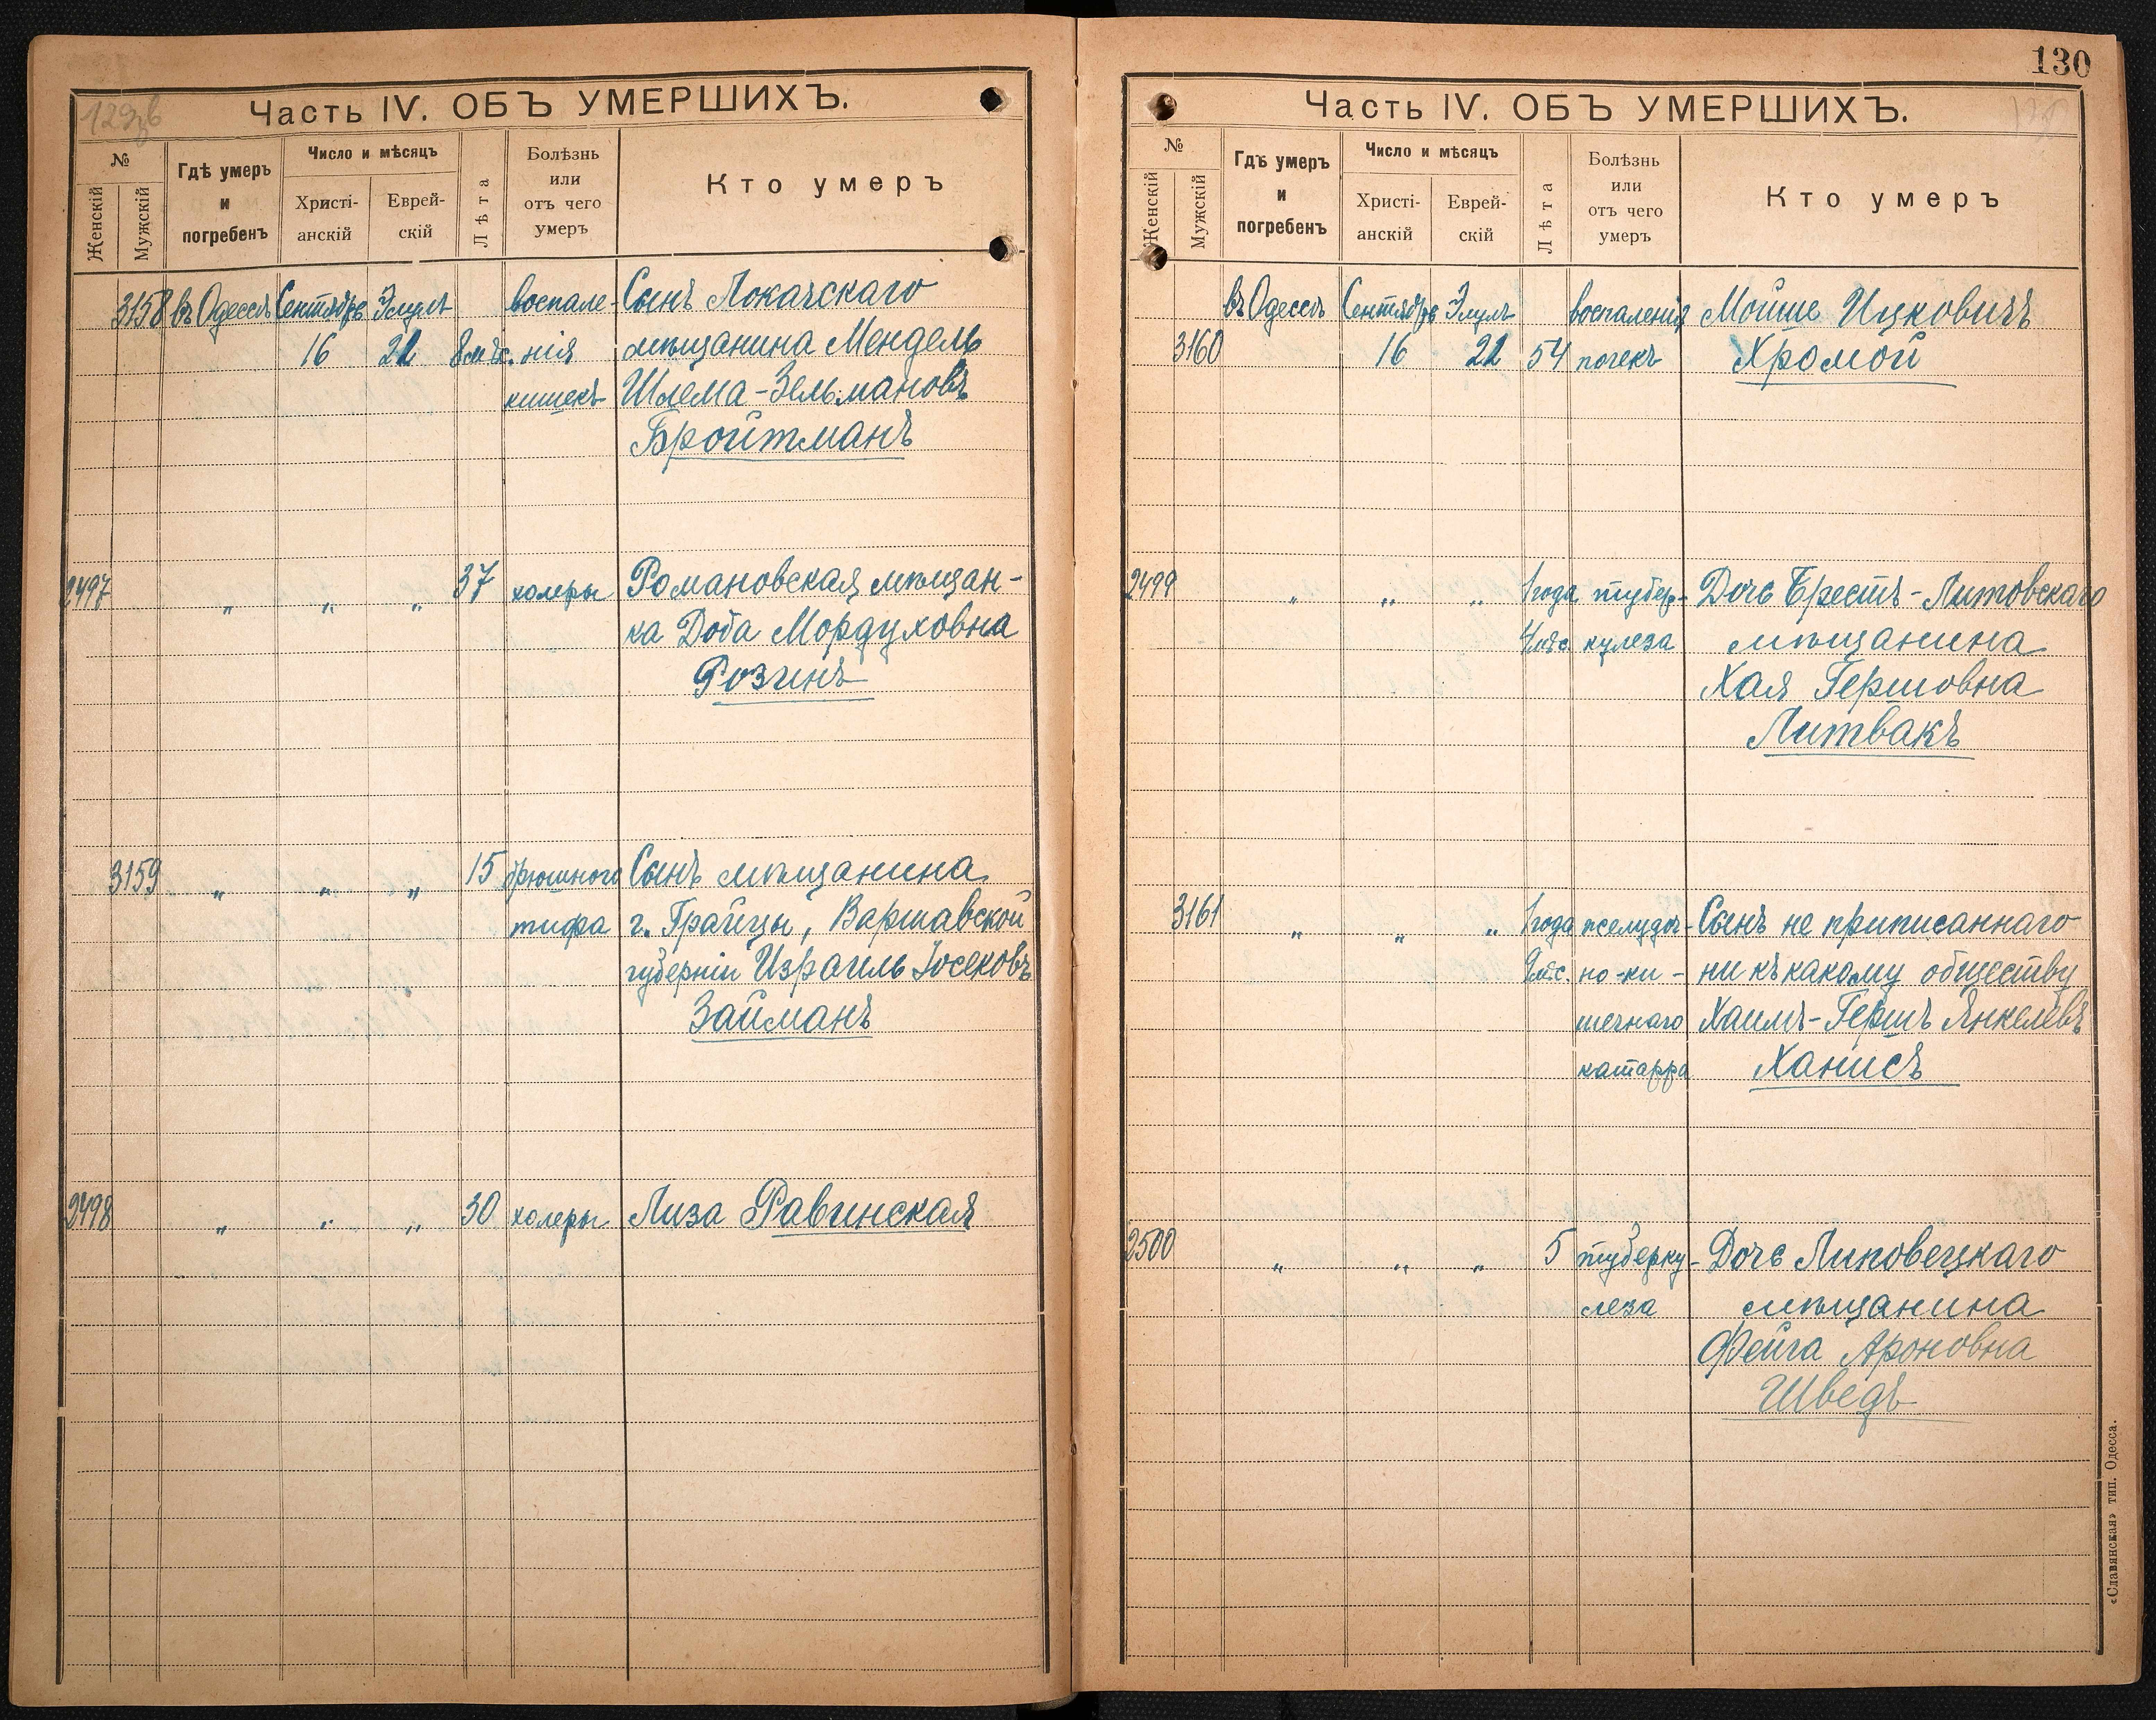 129зв
Часть IV. ОБЪ УМЕРШИХЪ.
№
Женскій
Мужскій
Гдѣ умеръ
и
погребенъ
Число и мѣсяцъ
Христі-
анскій
Еврей-
скій
Лѣта
Болѣзнь
или
отъ чего
умеръ
Кто умеръ
3158 въ Одессѣ Сентября Элулъ воспале- Сынъ Локачскаго
16 22 8 мѣс. нія мѣщанина Мендель
кишекъ Шлема-Зельмановъ
Бройтманъ
2497 „ „ „ 37 холеры Романовская мѣщан-
ка Доба Мордуховна
Розинъ
3159 „ „ „ 15 брюшного Сынъ мѣщанина
тифа г. Грайцы, Варшавской
губерніи Израиль Іосековъ
Займанъ
2498 „ „ „ 30 холеры Лиза Равинская
130
Часть IV. ОБЪ УМЕРШИХЪ.
№
Женскій
Мужскій
Гдѣ умеръ
и
погребенъ
Число и мѣсяцъ
Христі-
анскій
Еврей-
скій
Лѣта
Болѣзнь
или
отъ чего
умеръ
Кто умеръ
въ Одессѣ Сентября Элулъ воспаленія Мойше Ицковичъ
3160 16 22 54 почекъ Хромой
2499 „ „ „ 1 года тубер- Дочь Брестъ-Литовскаго
4 мѣс. кулеза мѣщанина
Хая Гершовна
Литвакъ
3161 „ „ „ 1 года желудоч- Сынъ не приписаннаго
2 мѣс. но-ки- ни къ какому обществу
шечнаго Хаимъ-Гершъ Янкелевъ
катарра Ханисъ
2500 „ „ „ 5 туберку- Дочь Липовецкаго
леза мѣщанина
Фейга Ароновна
Шведъ
«Славянская» тип. Одесса.